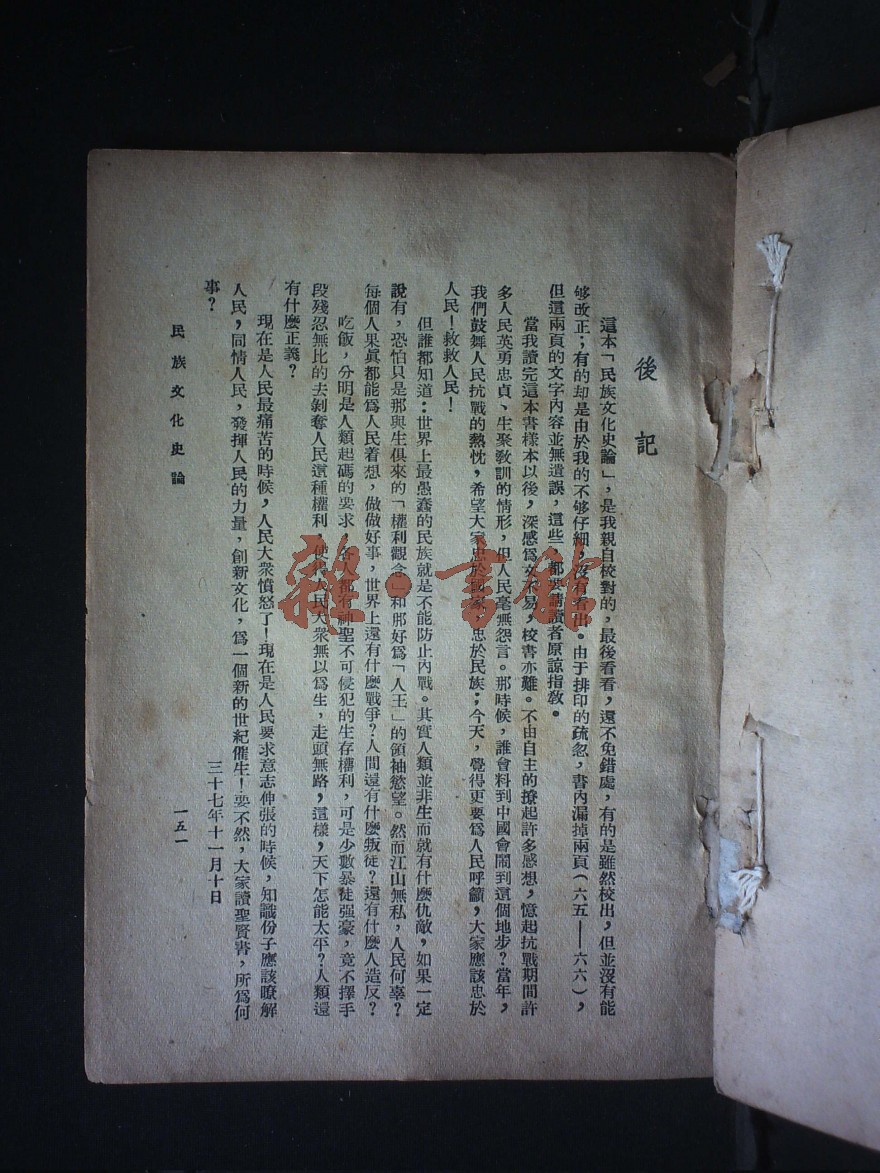 後記
這本「民族文化史論」，是我親自校對的，最後看看，還不免錯處，有的是雖然校出，但並沒有能
够改正；有的却是由於我的不够仔細，沒有看出。由于排印的疏忽，書內漏掉兩頁（六五——六六），
但這兩頁的文字內容並無遺誤，這些，都要請讀者原諒指教。
當我讀完這本書樣本以後，深感爲文不易，校書亦難。不由自主的撩起許多感想，憶起抗戰期間許
多人民英勇忠貞、生聚教訓的情形，但人民毫無怨言。那時候，誰會料到中國會鬧到這個地步？當年，
我們鼓舞人民抗戰的熱忱，希望大家忠於國家，忠於民族；今天，覺得更要爲人民呼籲，大家應該忠於
人民！救救人民！
但誰都知道：世界上最愚蠢的民族就是不能防止內戰。其實人類並非生而就有什麼仇敵，如果一定
說有，恐怕只是那與生俱來的「權利觀念」和那好爲「人王」的領袖慾望。然而江山無私，人民何辜？
每個人果眞都能爲人民着想，做做好事，世界上還有什麼戰爭？人間還有什麼叛徒？還有什麼人造反？
吃飯，分明是人類起碼的要求，各人都有神聖不可侵犯的生存權利，可是少數暴徒强豪，竟不擇手
段殘忍無比的去剝奪人民這種權利，使得人民大衆無以爲生，走頭無路，這樣，天下怎能太平？人類還
有什麼正義？
現在是人民最痛苦的時候，人民大衆憤怒了！現在是人民要求意志伸張的時候，知識份子應該瞭解
人民，同情人民，發揮人民的力量，創新文化，爲一個新的世紀催生！要不然，大家讀聖賢書，所爲何
事？
三十七年十一月十日
民族文化史論
一五一
雜·書館